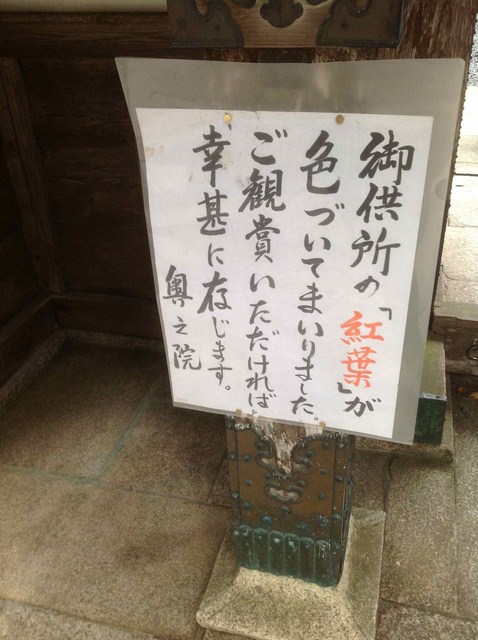 御供所の「紅葉」が
色づいてまいりました。
ご観賞いただければ
幸甚に存じます。
奥之院